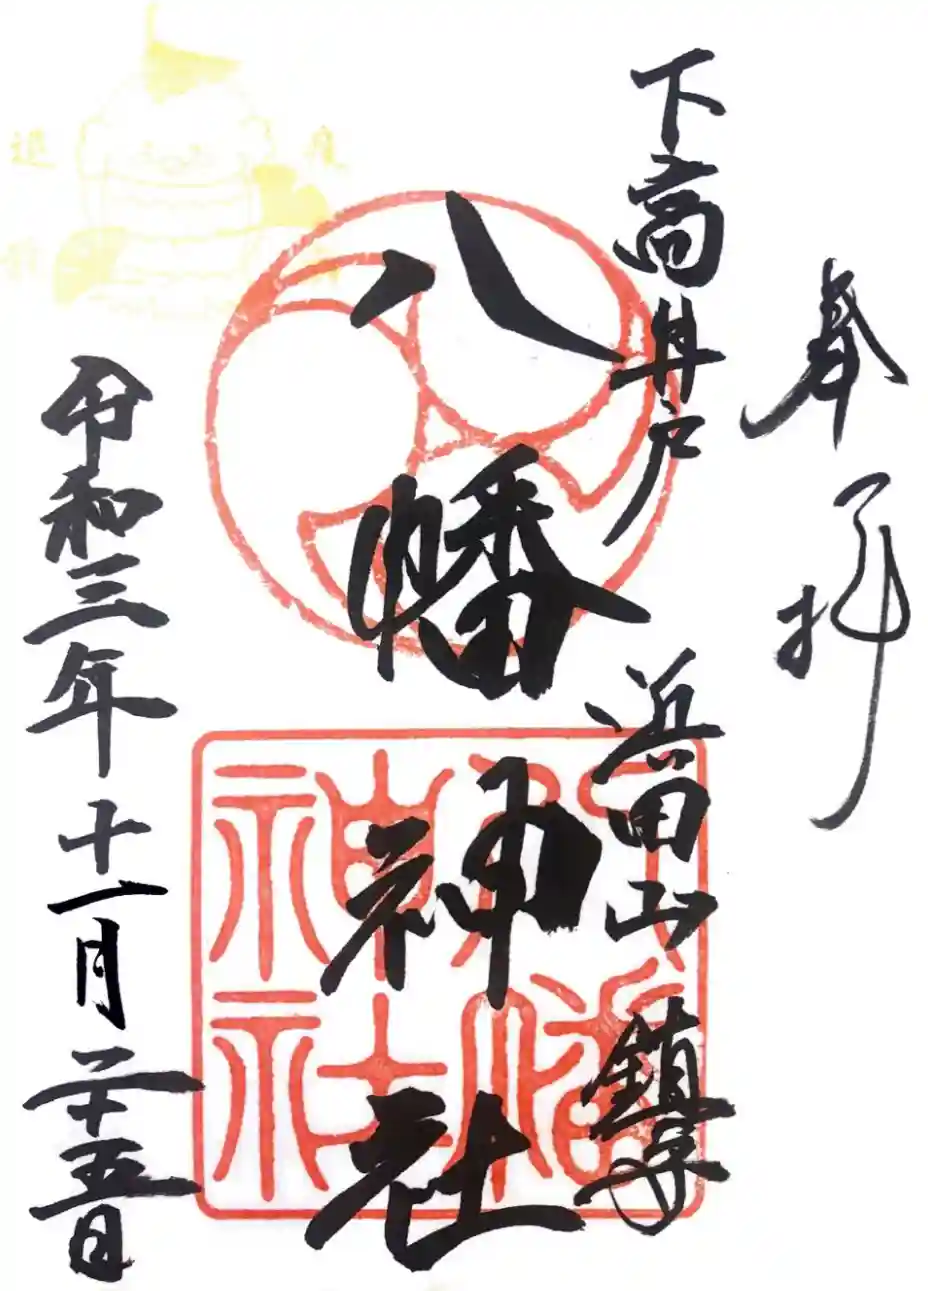 奉拝
下高井戸 浜田山 鎮守
八幡神社
八幡
神社
令和三年十一月二十五日